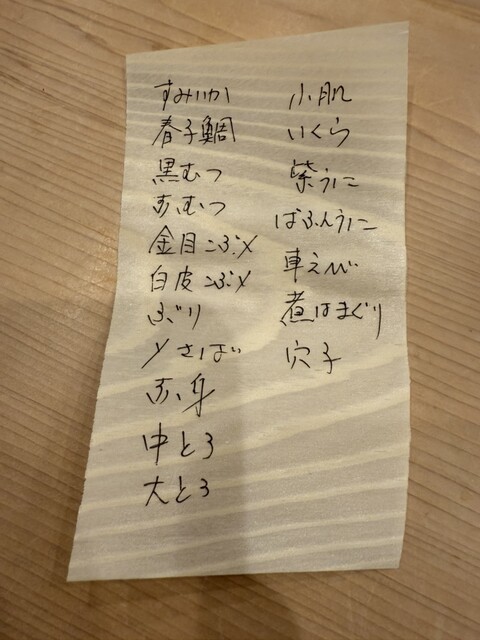 すみいか
春子鯛
黒むつ
赤むつ
金目こぶ〆
白皮こぶ〆
ぶり
〆さば
赤身
中とろ
大とろ
小肌
いくら
紫うに
ばふんうに
車えび
煮はまぐり
穴子